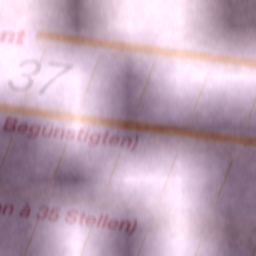 nt
37
Begünstigten)
n à 35 Stellen)